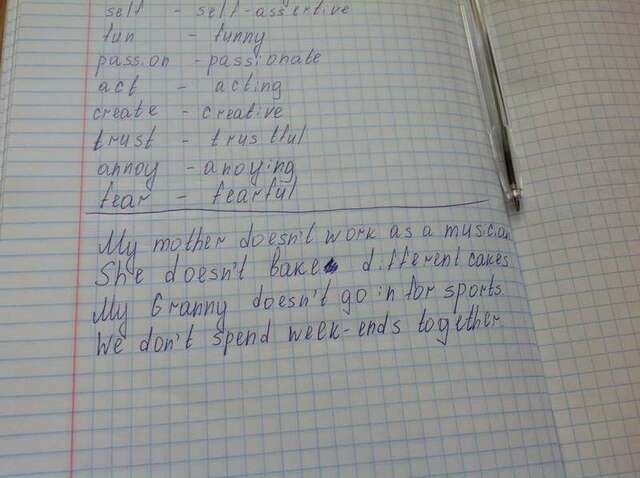 self - self-assertive
fun - funny
passion - passionate
act - acting
create - creative
trust - trustful
annoy - anoying
fear - fearful
My mother doesn't work as a musician
She doesn't bake different cakes.
My Granny doesn't go in for sports.
We don't spend week-ends together.